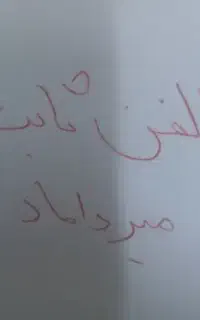 تلفن ثابت
میرداماد